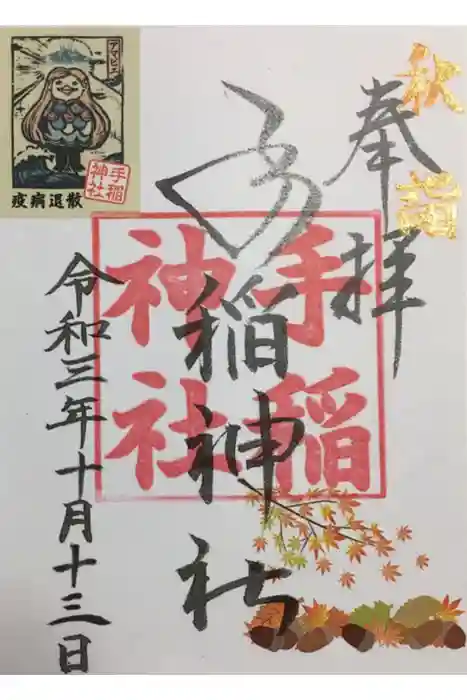 秋詣
奉拝
手稲神社
手稲
神社
令和三年十月十三日
アマビエ
手稲
神社
疫病退散